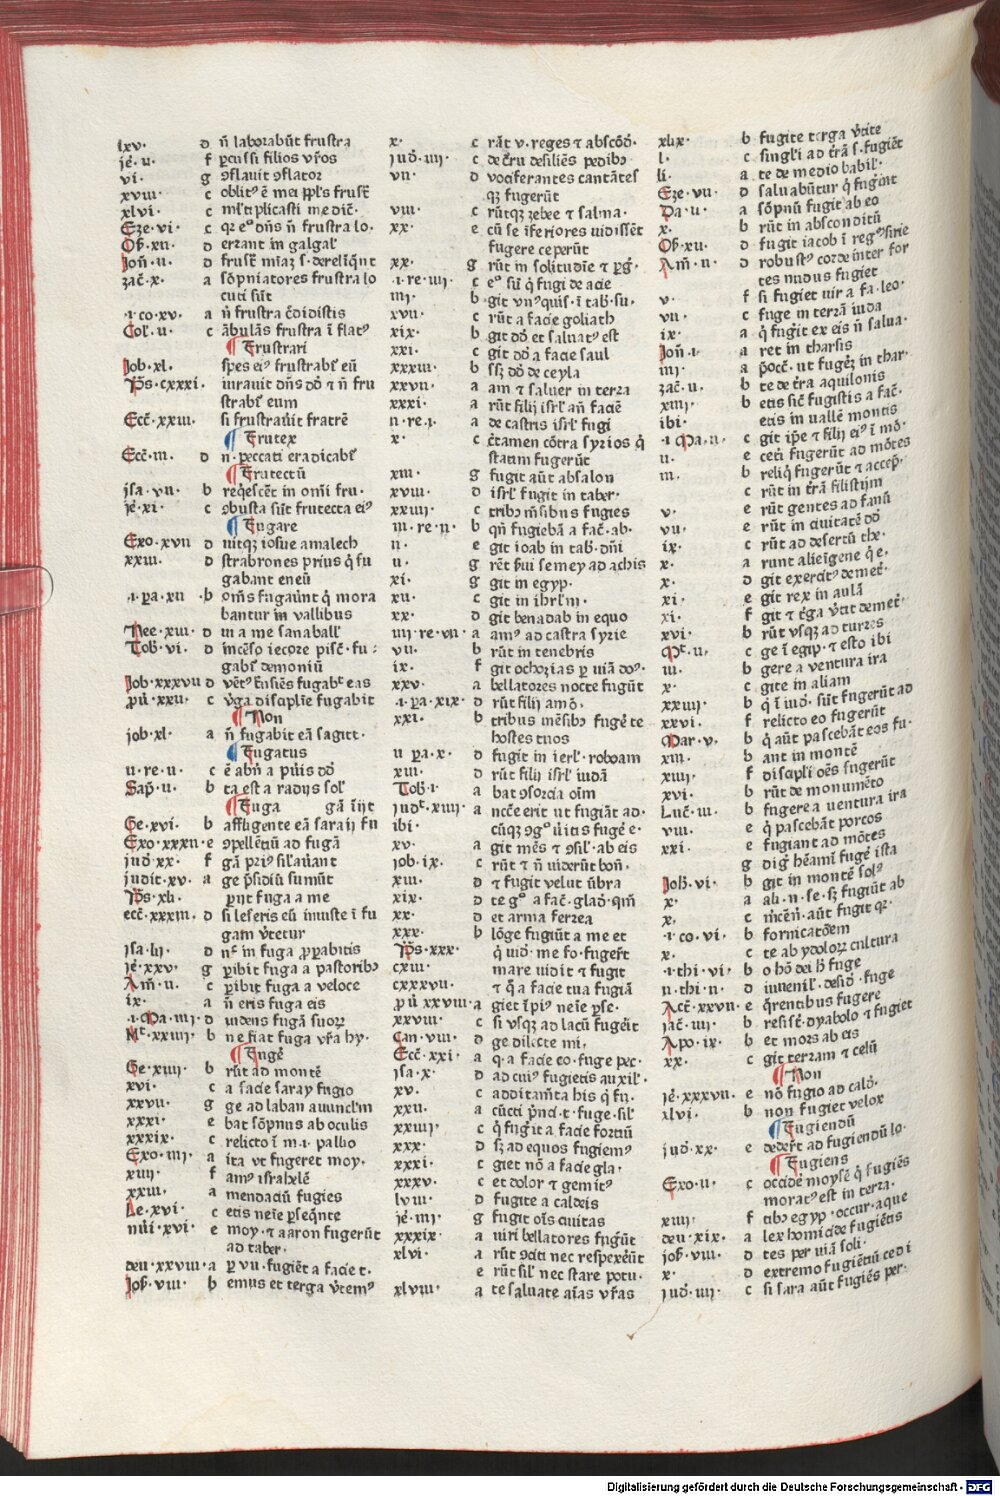 lxv. d n̄ laborabūt frustra
jē. ii. f ꝑcussi filios vr̄os
vi. g ꝯflauit ꝯflator
xviii. c oblitꝰ ē mei ppl̄s frust̄
xlvi. c ml̄tiplicasti me dic̄.
Eze. vi. c qꝛ eᵒ dn̄s n̄ frustra lo.
Oẜ. xii. d errant in galgal
Jon̄. ii. d frust̄ mīaꝫ s. dereliq̄nt
zac̄. x. a sōpniatores frustra lo
cuti sūt
.i. co. xv. a n̄ frustra c̄didistis
Col̄. ii. c ābulās frustra ī flatꝰ
¶ Frustrari
Job. xl. spes eiꝰ frustrabit̄ eū
Ps̄. cxxxi. iurauit dn̄s dō ⁊ n̄ fru
strabit̄ eum
Ecc̄. xxiii. si frustrau̇it fratrē
¶ Frutex
Ecc̄. iii. d n̄. peccati eradicabit̄
¶ Frutectū
jsa. vii. b reqͥescēt in om̄i fru.
jē. xi. c ꝯbusta sūt frutecta eiꝰ
¶ Fugare
Exo. xvii d uitqꝫ iosue amalech
xxiii. d strabrones priꝰ q̄ fu
gabant eneū
.i. pa. xii .b om̄s fugau̇nt q̄ mora
bantur in vallibus
Nee. xiii. d ui a me sanaball̄
Tob̄. vi. d īncēso iecore pisc̄. fu.
gabit̄ demoniū
Job. xxxvii d vēt̄ꝰ t̄nsiēs fugabᵗ eas
pu̇. xxii. c v̇ga disciplīe fugabit
¶ Non
job. xl. a n̄ fugabit eā sagitt.
¶ Fugatus
ii. re. ii. c ē abn̄ a pu̇is dō
Sap̄. ii. b ta est a radijs sol̄
¶ Fuga gā īijt
Ge. xvi. b affligente eā saraij fu
Exo. xxxii. e ꝯpellētiū ad fugā
jud̄. xx. f gā priꝰ sil̄au̇ant
judit. xv. a ge p̄sidiū sumūt
Ps̄. xli. ꝑijt fuga a me
ecc̄. xxxiii. d si leseris eū iniuste ī fu
gam v̇tetur
jsa. lii. d nᶜ in fuga ꝓꝑabitis
jē. xxv. g ꝑibit fuga a pastoribꝫ
Am̄. ii. c ꝑibit fuga a veloce
ix. a n̄ eris fuga eis
.i. Ma. iiij. d uidens fugā suoꝝ
Mᵗ. xxiiij. b ne fiat fuga vr̄a hy.
¶ Fugē
Ge. xiiij. b rūt ad montē
xvi. c a facie saray fugio
xxvii. g ge ad laban auunclm̄
xxxi. e bat sōpnus ab oculis
xxxix. c relicto ī m. i. pallio
Exo. iiij. a ita vt fugeret moy.
xiiij. f amꝰ israhelē
xxiii. a mendaciū fugies
Le. xvi. c etis neīe ꝑseq̄nte
nūi. xvi. e moy. ⁊ aaron fugerūt
ad taber.
deu. xxviii. a ꝑ vii. fugiēt a facie t.
Joẜ. viii. b emus et terga v̇temꝰ
x. c rāt v. reges ⁊ abscōd̄.
jud̄. iiij. c de c̄ru desiliēs pedibꝫ
vii. d vociferantes cantātes
qꝫ fugerūt
viii. c rūtqꝫ zebee ⁊ salma.
xx. e cū se īferiores uidissēt
fugere ceperūt
xx. g rūt in solitudīe ⁊ ꝑg̊.
.i. re. iiij. c eᵒ sū q̄ fugi de acie
iiij. b git vnꝰquis. ī tab̄. su.
xvii. c rūt a facie goliath
xix. b git dd̄ et saluatꝰ est
xxi. c git dd̄ a facie saul
xxxiii. b sꝫ dd̄ de ceyla
xxvii. a am ⁊ saluer in terra
xxxi. a rūt filij isrl̄ an̄ faciē
ii. re. i. a de castris isrl̄ fugi
x. c c̄tamen cōtra syrios q̄
statim fugerūt
xiii. g fugit aūt absalon
xviii. d isrl̄ fugit in taber.
xxiiij. c tribꝫ m̄sibus fugies
iii. re. ii. b qn̄ fugiebā a fac̄. ab.
ii. e git ioab in tab̄. dn̄i
ii. g rēt p̄ui semey ad achis
xi. g git in egyp.
xii. c git in ihrl̄m.
xx. d git benadab in equo
iiij. re. vii. a amꝰ ad castra syrie
vii. b rūt in tenebris
ix. f git ochozias ꝑ uiā doꝰ.
xxv. a bellatores nocte fugūt
.i. pa. xix. d rūt filij amō.
xxi. b tribus mēsibꝰ fugē te
hostes tuos
ii pa. x. d fugit in ierl̄. roboam
xiii. d rūt filij isrl̄ iudā
Tob̄. i. a bat ꝯsorcia oīm
judᵗ. xiiij. a nccē erit ut fugiāt ad.
ibi. cūqꝫ ꝯgᵒ u̇itas fugē e.
xv. a git mēs ⁊ ꝯsil̄. ab eis
job. ix. c rūt ⁊ n̄ uiderūt bon̄.
xiii. d ⁊ fugit velut ūbra
xix. d te gᵒ a fac̄. glad̄. qm̄
xx. d et arma ferrea
xxx. b lōge fugiūt a me et
Ps̄. xxx. q̄ uid̄. me fo. fuger̄t
cxiii. mare uidit ⁊ fugit
cxxxvii. ⁊ q̄ a facie tua fugiā
pu̇ xxviii. a giet īpiꝰ neīe ꝑse.
xxviii. c si vsqꝫ ad lacū fugēit
Can. viii. d ge dilecte mi.
Ecc̄. xxi. a q. a facie co. fuge pec.
jsa. x. d ad cuiꝰ fugietis auxil̄.
xv. c additam̄ta his q̄ fu.
xxii. a cūcti p̄nci. t. fuge. sil̄
xxiij. c q̄ fug̊it a facie fortiū
xxx. d sꝫ ad equos fugiemꝰ
xxxi. c giet nō a facie gla.
xxxv. c et dolor ⁊ gemitꝰ
lviii. d fugite a caldeis
jē. iiij. g fugit oīs ciuitas
xxxix. a uiri bellatores fug̊ūt
xlvi. a rūt ꝯciti nec respexe̊ūt
e rūt sil̄ nec stare potu.
xlviii. a te saluate aīas vr̄as
xlix. b fugite terga v̇tite
l. c singl̄i ad t̄rā s. fugiēt
li. a te de medio babil̄.
Eze. vii. d saluabūtur q̄ fug̊int
Da. ii. a sōpnū fugit ab eo
x. b rūt in absconditū
Oẜ. xii. d fugit iacob ī regꝰ sirie
Am̄. ii. d robustꝰ corde inter for
tes nudus fugiet
v. f si fugiet uir a fa. leo.
vii. c fuge in terrā iuda
ix. a q̄ fug̊it ex eis n̄ salua.
Jon̄. i. a ret in tharsis
iiij. a p̄occ̄. ut fugeꝫ in thar.
zac̄. ii. b te de t̄ra aquilonis
xiiij. b etis sic̄ fugistis a fac̄.
ibi. etis in uallē montis
.i Ma. ii. c git ip̄e ⁊ filij eiꝰ ī mō.
ii. e ceti fugerūt ad mōtes
iii. b reliq̄ fugerūt ⁊ accep̄.
c rūt in t̄rā filistijm
v. e rūt gentes ad fanū
vii. e rūt in ciuitatē dd̄
ix. c rūt ad desertū the.
x. a runt alieīgene q̄ e.
x. d git exercitꝰ demet̄.
xi. e git rex in aulā
xi. f git ⁊ t̄ga v̇tit demet̄.
xvi. b rūt vsqꝫ ad turres
Mᵗ. ii. c ge ī egip. ⁊ esto ibi
iii. b gere a ventura ira
x. c gite in aliam
xxiiij. b q̄ ī iud̄. sūt fugerūt ad
xxvi. f relicto eo fugerūt
Mar. v. b q̄ aūt pascebāt eos fu.
xiii. b ant in montē
xiiij. f discipl̄i oēs fugerūt
xvi. b rūt de monumēto
Luc̄. iii. b fugere a uentura ira
viii. e q̄ pascebāt porcos
xxi. e fugiant ad mōtes
g dig̊ hēamī fugē ista
Joh̄. vi. b git in montē solꝰ
x. a ali. n. se. sꝫ fugiūt ab
x. c m̄cēn̄. aūt fugit qꝛ.
.i. co. vi. b fornicatōem
x. c te ab ydoloꝝ cultura
.i. thi. vi. b o hō dei h̄ fuge
ii. thi. ii. d iuuenil̄. desid̄. fuge
Act̄. xxvii. e q̄rentibus fugere
jac̄. iiij. b resist̄. dyabolo ⁊ fugiet
Apo. ix. b et mors ab eis
xx. c git terram ⁊ celū
¶ Non
jē. xxxvii. e nō fugio ad cald̄.
xlvi. b non fugiet velox
¶ Fugiendū
jud̄. xx. e deder̄t ad fugiendū lo.
¶ Fugiens
Exo. ii. c occidē moysē q̄ fugiēs
moratꝰ est in terra.
xiiij. f tibꝫ egyp. occur. aque
deu. xix. a lex homicide fugiētis
joẜ. viii. d tes per uiā soli.
x. d extremo fugiētiū cedi
jud̄. iiij. c sisara aūt fugiēs per.
Digitalisierung gefördert durch die Deutsche Forschungsgemeinschaft - DFG